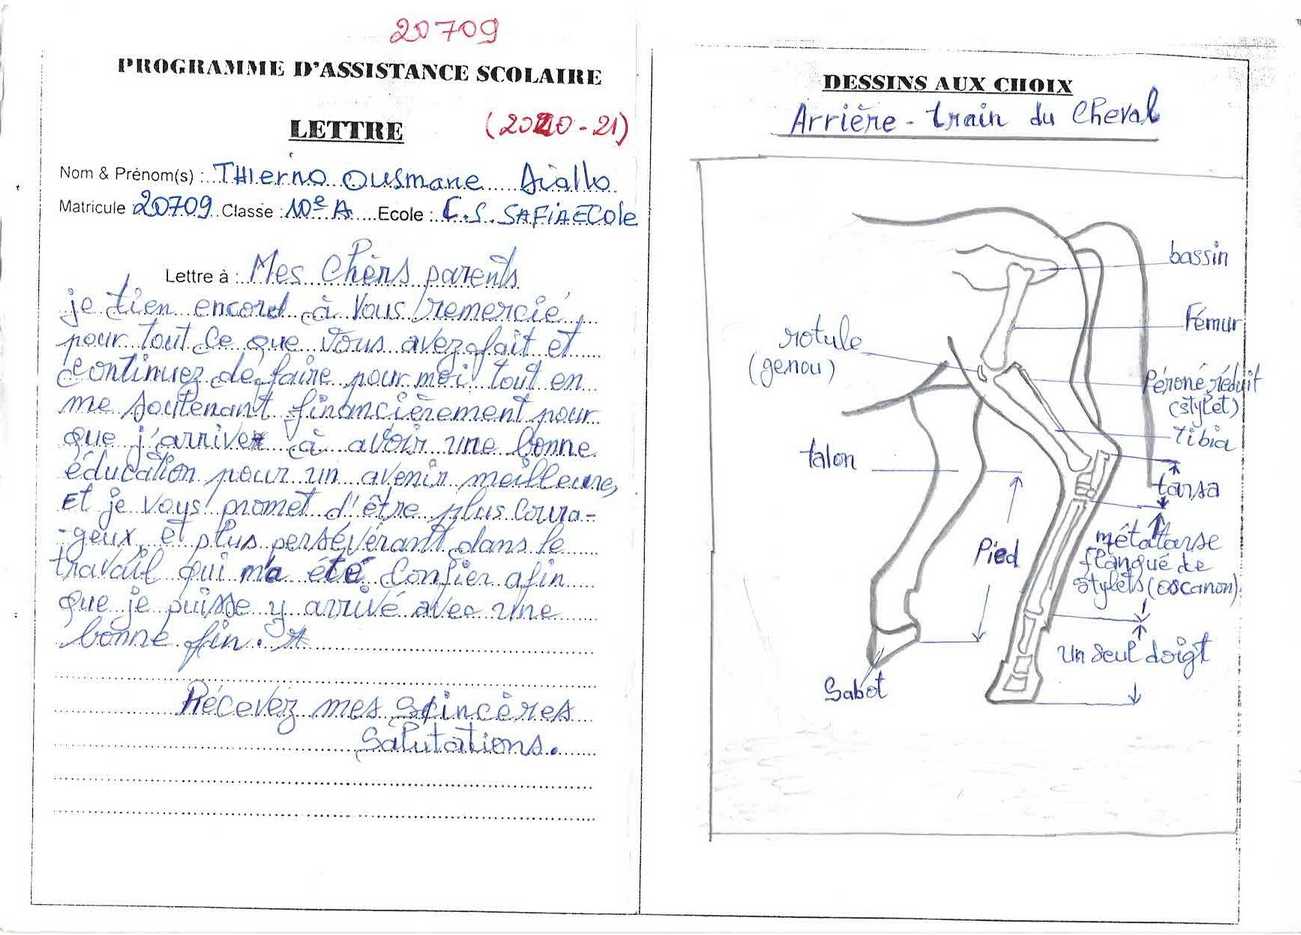 20709
PROGRAMME D'ASSISTANCE SCOLAIRE
LETTRE (2020-21)
Nom & Prénom(s) : THIerno OUSmane Diallo
Matricule 20709 Classe : 10e A Ecole : C.S. SAFIAECOle
Lettre à : Mes Chèrs parents
je tien encord à vous remercié,
pour tout ce que vous avez fait et
continuez de faire pour moi tout en
me soutenant financièrement pour
que j'arrive à avoir une bonne
éducation pour un avenir meilleure,
Et je vous promet d'être plus coura-
-geux et plus persévérant dans le
travail qui m'a été confier afin
que je puisse y arrivé avec une
bonne fin.
Récevez mes sincères
Salutations.
DESSINS AUX CHOIX
Arrière-train du cheval
bassin
Fémur
rotule
(genou)
Péroné réduit
(stylet)
tibia
talon
tarsa
Pied
métatarse
flanqué de
stylets (os canon)
un seul doigt
Sabot